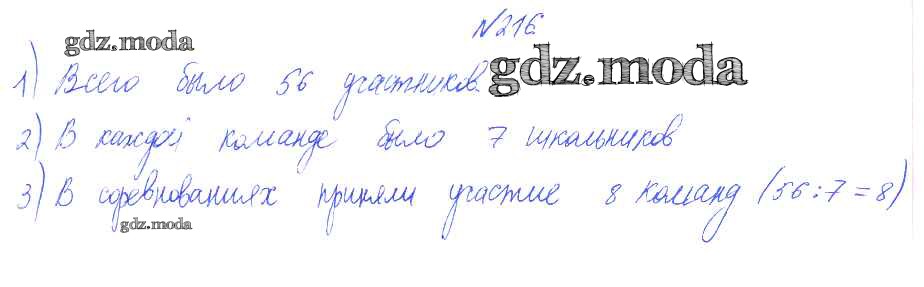 №216
gdz.moda
1) Всего было 56 участников gdz.moda
2) В каждой команде было 7 школьников
3) В соревнованиях приняли участие 8 команд (56:7=8)
gdz.moda